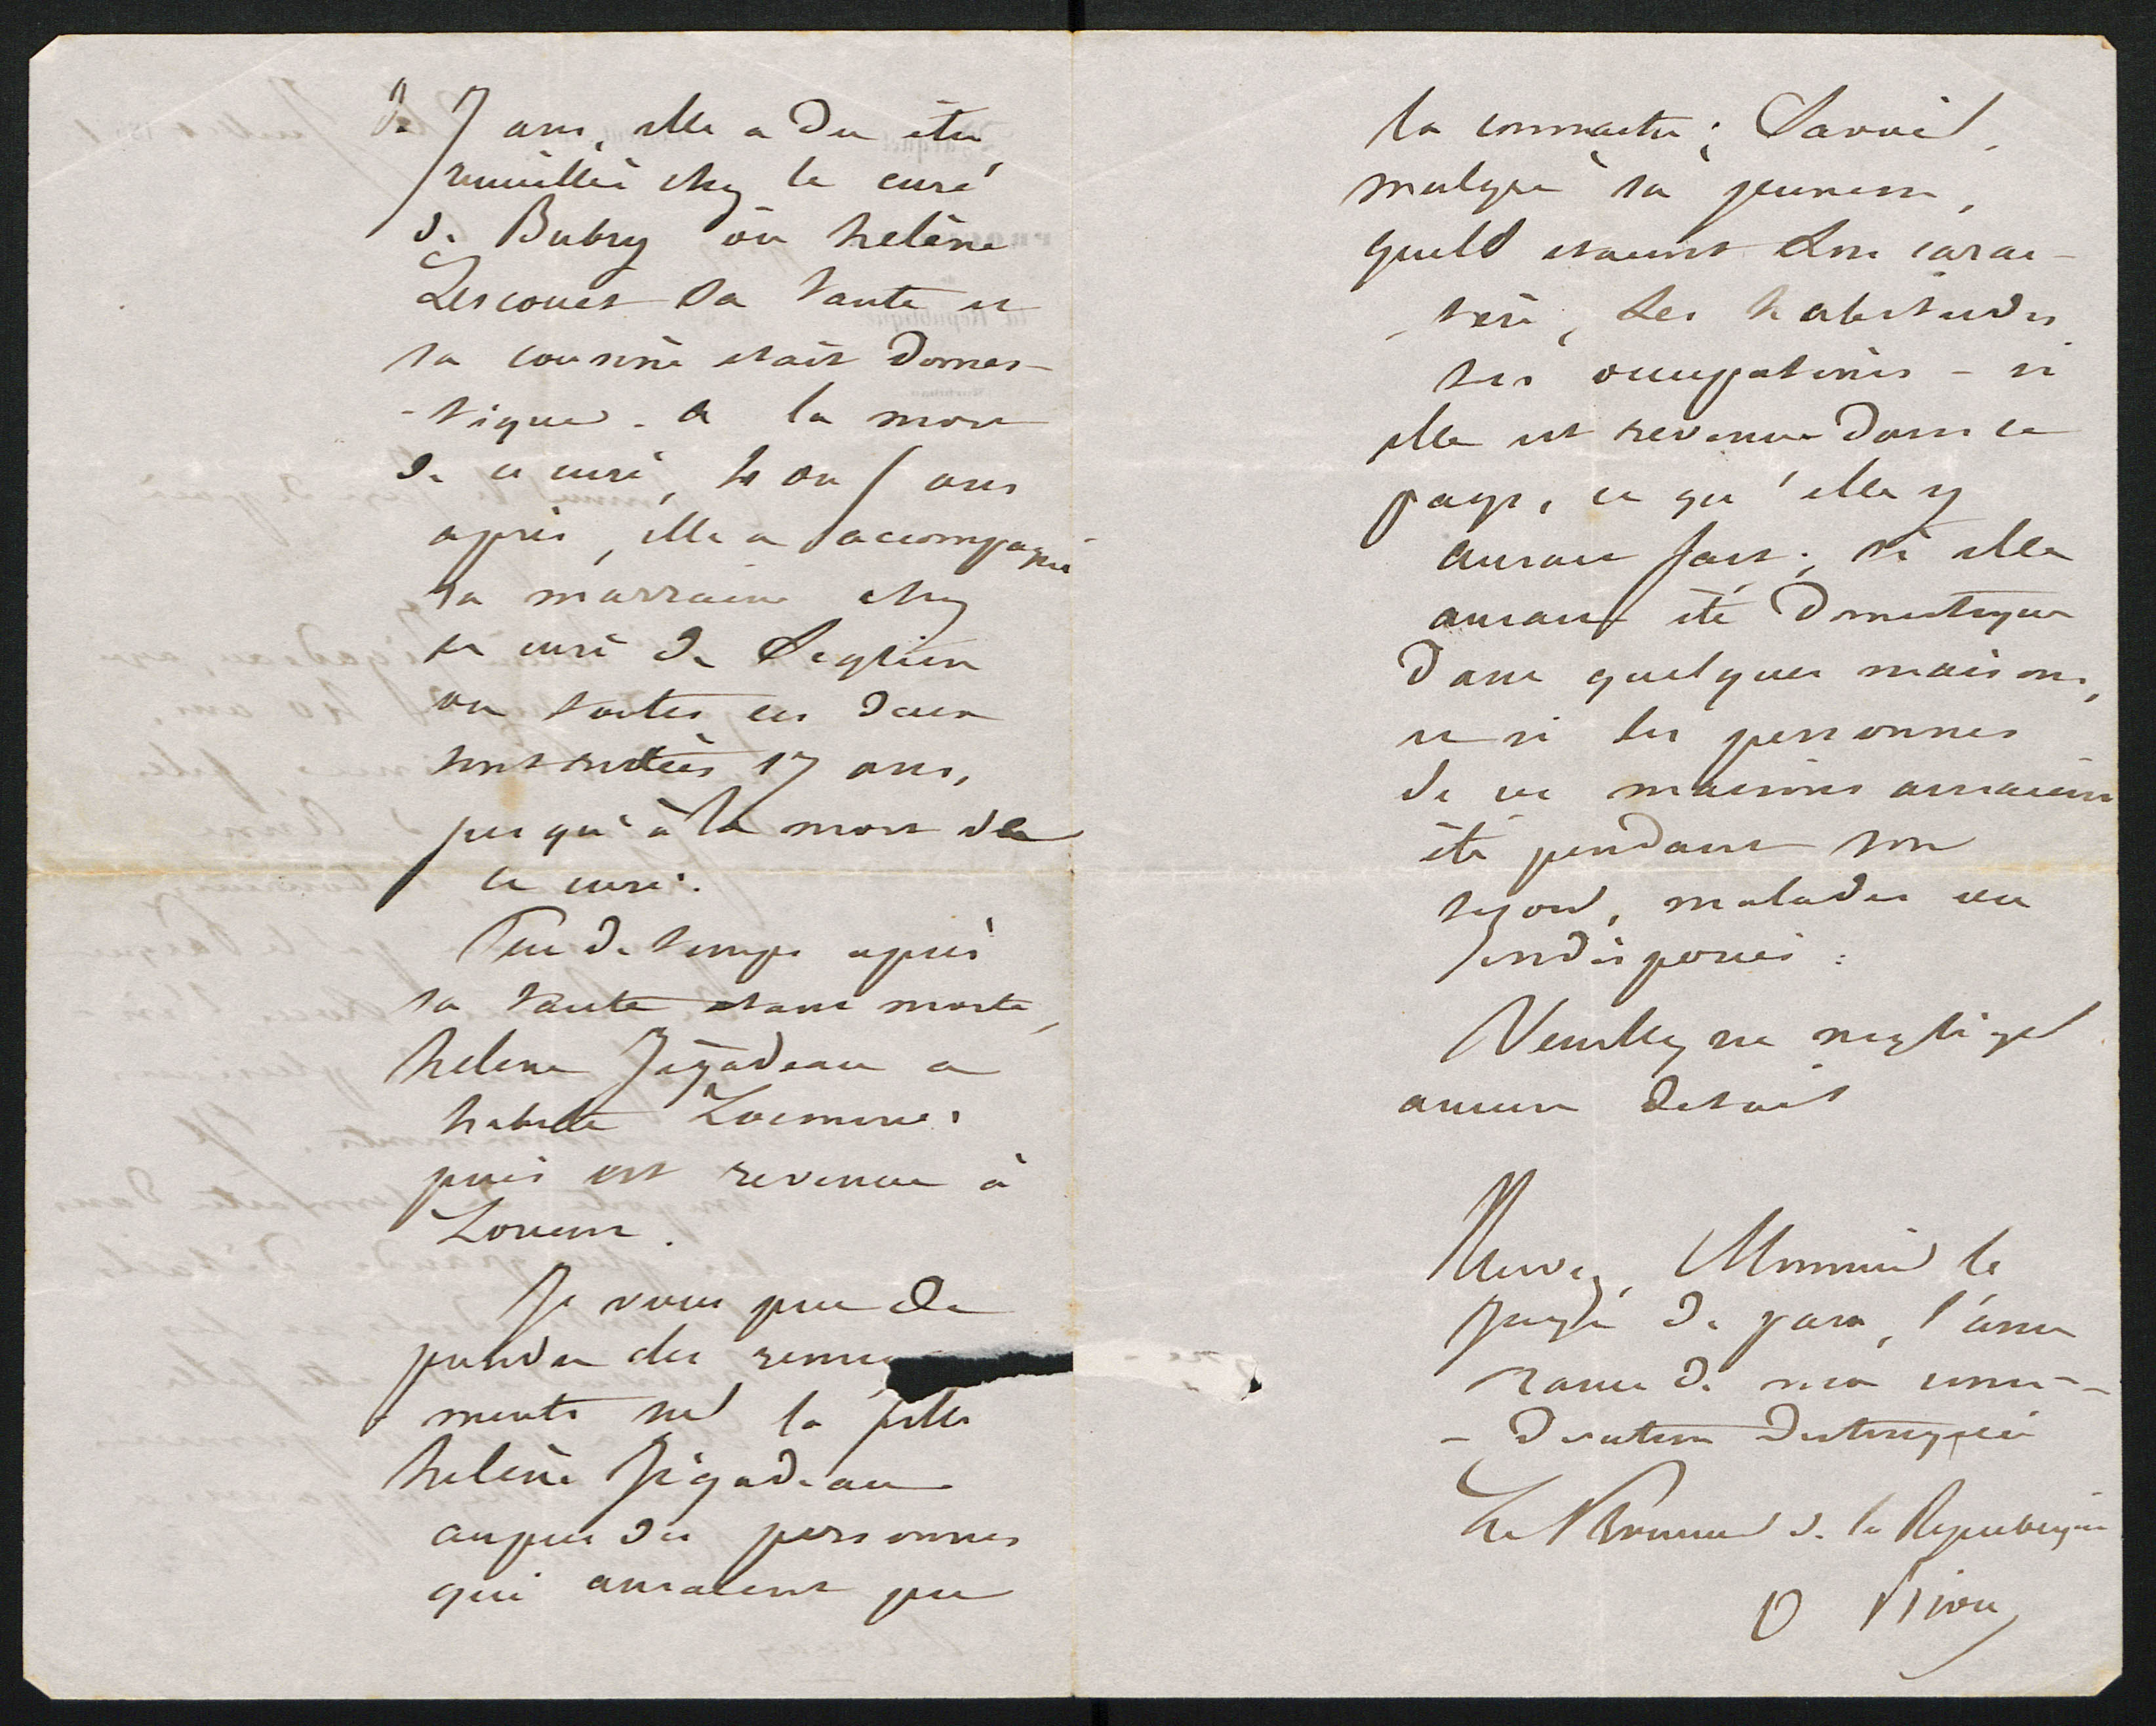 de 7 ans, elle a du être
recueillie chez le curé
de Bubry où helène
Lescouet sa tante et
sa cousine etait domes-
-tique. A la mort
de ce curé, 4 ou 5 ans
après, elle a accompagné
sa marraine chez
le curé de Seglien
ou toutes les deux
sont restées 17 ans,
jusqu'à la mort de
ce curé.
Peu de temps après
sa tante etant morte,
helene Jégadeau a
habité Locminé,
puis est revenue à
Lorient.
Je vous prie de
prendre des rensei
-ments sur la fille
helène Jégadeau
auprès des personnes
qui auraient pu
la connaitre; Savoir,
malgré sa jeunesse,
quels etaient son carac-
-tère, ses habitudes
ses occupations - si
elle est revenue dans ce
pays, ce qu'elle y
aurait fait; si elle
aurait été domestique
dans quelques maisons,
et si les personnes
de ces maisons auraient
été pendant son
sejour, malades ou
indisposées:
Veuillez ne negliger
aucun detail
Recevez, Monsieur le
juge de paix, l'assu
rance de ma consi-
-deration distinguée
Le Procureur de la Republique